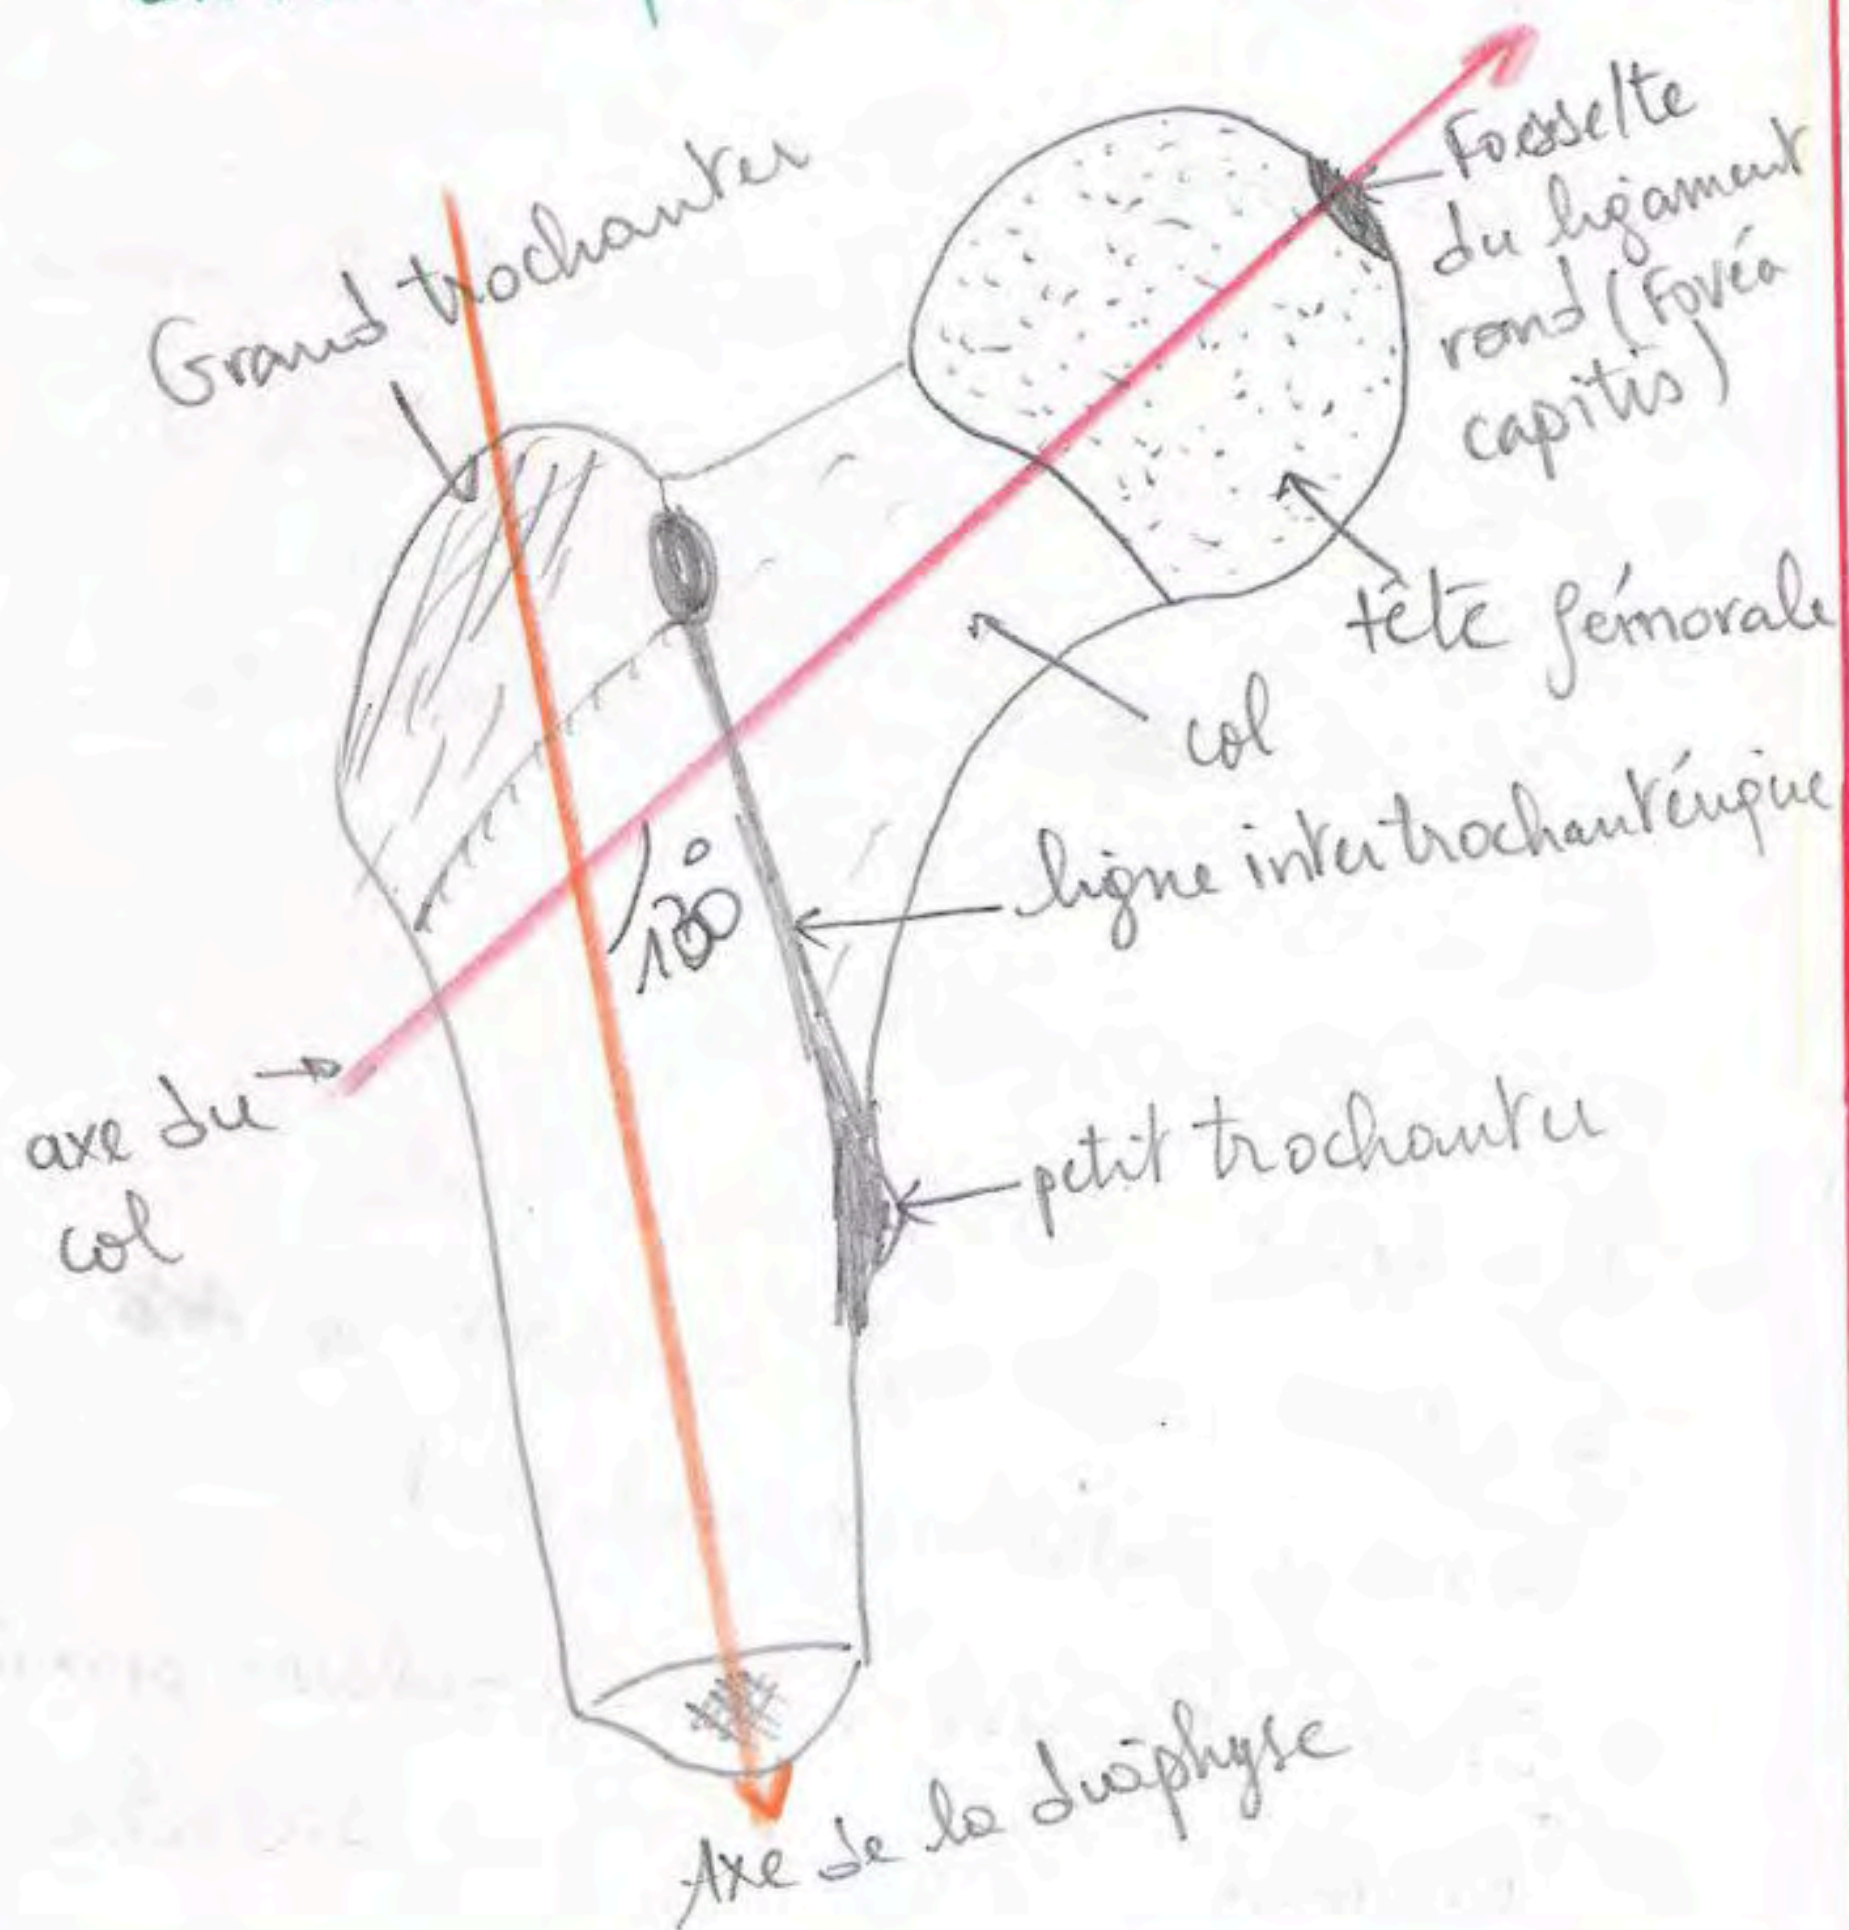 Grand trochanter
Fossette
du ligament
rond (Fovéa
capitis)
tête fémorale
col
ligne intertrochantérique
130°
axe du
col
petit trochanter
Axe de la diaphyse